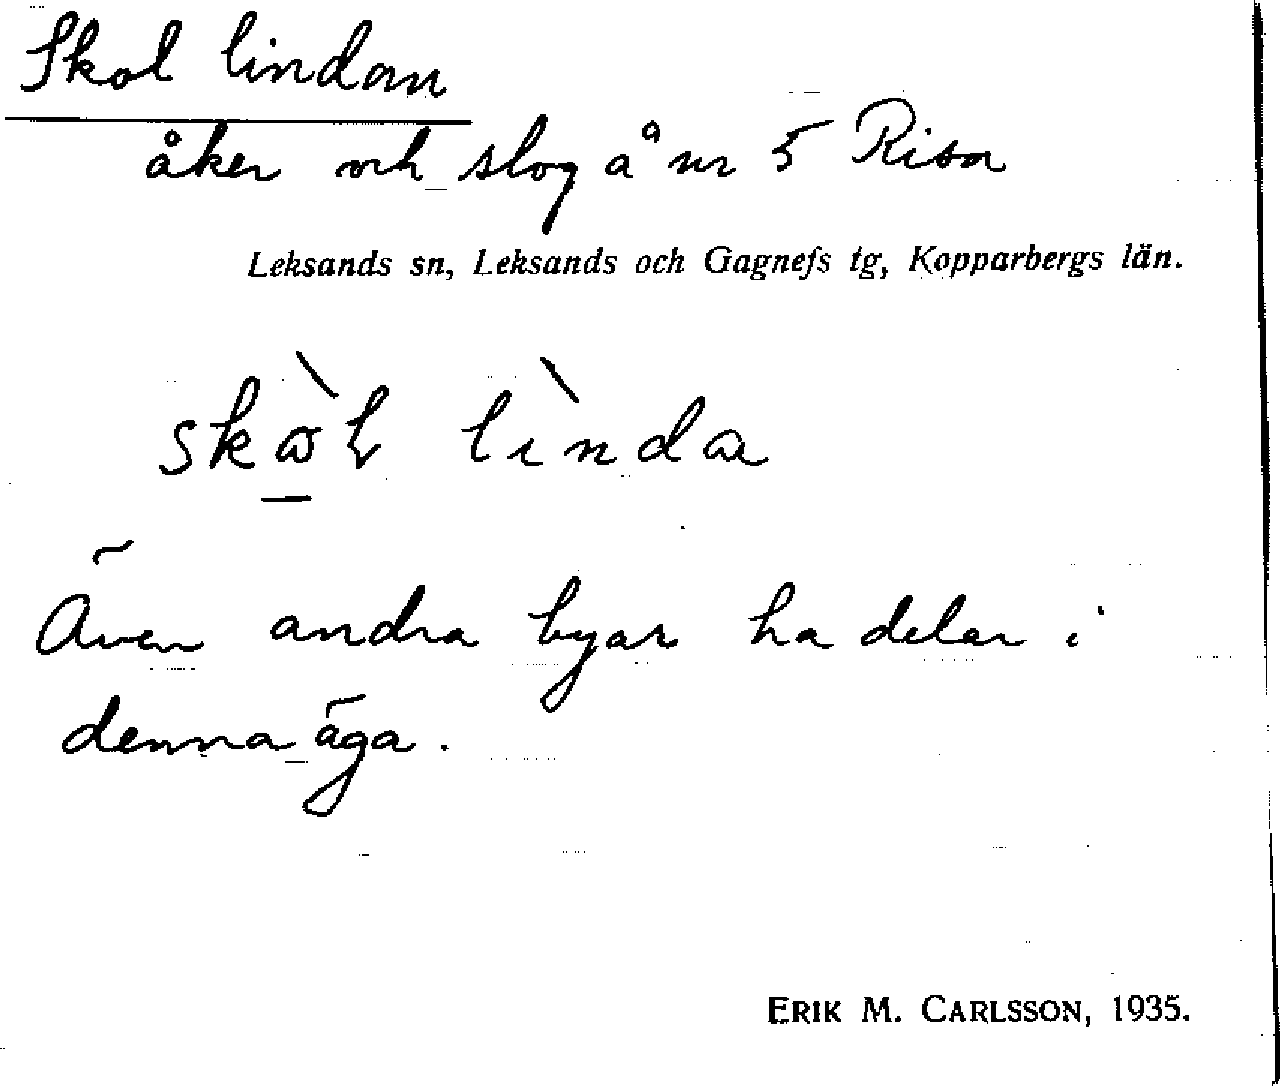 Skol lindan
åker och slog å nr 5 Risa
Leksands sn, Leksands och Gagnefs tg, Kopparbergs län.
Även andra byar ha delar i
denna äga.
ERIK M. CARLSSON, 1935.